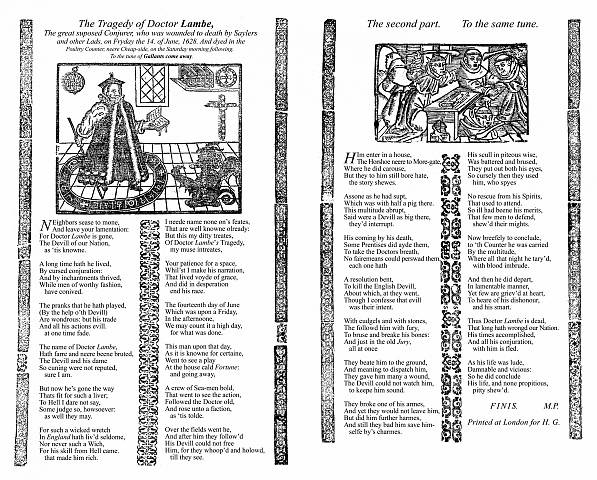 The Tragedy of Doctor Lambe,
The great suposed Conjurer, who was wounded to death by Saylers
and other Lads, on Fryday the 14. of June, 1628. And dyed in the
Poultry Counter, neere Cheap-side, on the Saturday morning following.
To the tune of Gallants come away.
NEighbors sease to mone,
And leave your lamentation:
For Doctor Lambe is gone,
The Devill of our Nation,
as 'tis knowne.
A long time hath he lived,
By cursed conjuration:
And by inchantments thrived,
While men of worthy fashion,
have conived.
The pranks that he hath played,
(By the help o'th Devill)
Are wondrous: but his trade
And all his actions evill.
at one time fade.
The name of Doctor Lambe,
Hath fame and neere beene bruted,
The Devill and his dame
So cuning were not reputed,
sure I am.
But now he's gone the way
Thats fit for such a liver;
To Hell I dare not say,
Some judge so, howsoever:
as well they may.
For such a wicked wretch
In England hath liv'd seldome,
Nor never such a Wich,
For his skill from Hell came.
that made him rich.
I neede name none on's feates,
That are well knowne already:
But this my ditty treates,
Of Doctor Lambe's Tragedy,
my muse intreates,
Your patience for a space,
Whil'st I make his narration,
That lived voyde of grace,
And did in desperation
end his race.
The fourteenth day of June
Which was upon a Friday,
In the afternoone,
We may count it a high day,
for what was done.
This man upon that day,
As it is knowne for certaine,
Went to see a play
At the house cald Fortune:
and going away,
A crew of Sea-men bold,
That went to see the action,
Followed the Doctor old,
And rose unto a faction,
as 'tis tolde.
Over the fields he went,
And after him they follow'd
His Devill could not free
Him, for they whoop'd and holowd,
till they see.
The second part. To the same tune.
HIm enter in a house,
The Horshoe neere to More-gate,
Where he did carouse,
But they to him still bore hate,
the story shewes.
Assone as he had supt,
Which was with half a pig there.
This multitude abrupt,
Said were a Devill as big there,
they'd interrupt.
His coming by his death,
Some Prentises did ayde them,
To take the Doctors breath,
No fairemeans could perswad them,
each one hath
A resolution bent,
To kill the English Devill,
About which, at they went,
Though I confesse that evill
was their intent.
With cudgels and with stones,
The followed him with fury,
To bruse and breake his bones:
And just in the old Jury,
all at once
They beate him to the ground,
And meaning to dispatch him,
They gave him many a wound,
The Devill could not watch him,
to keepe him sound.
They broke one of his armes,
And yet they would not leave him,
But did him further harmes,
And still they bad him save him-
selfe by's charmes.
His scull in piteous wise,
Was battered and brused,
They put out both his eyes,
So cursely then they used
him, who spyes
No rescue from his Spirits,
That used to attend.
So ill had beene his merits,
That few men to defend,
shew'd their mights.
Now breefely to conclude,
to 'th Counter he was carried
By the multitude,
Where all that night he tary'd,
with blood imbrude.
And then he did depart,
In lamentable manner,
Yet few are griev'd at heart,
To heare of his dishonour,
and his smart.
Thus Doctor Lambe is dead,
That long hath wrongd our Nation.
His times accomplished,
And all his conjuration,
with him is fled.
As his life was lude,
Damnable and vicious:
So he did conclude
His life, and none propitious,
pitty shew'd.
FINIS. M.P.
Printed at London for H. G.